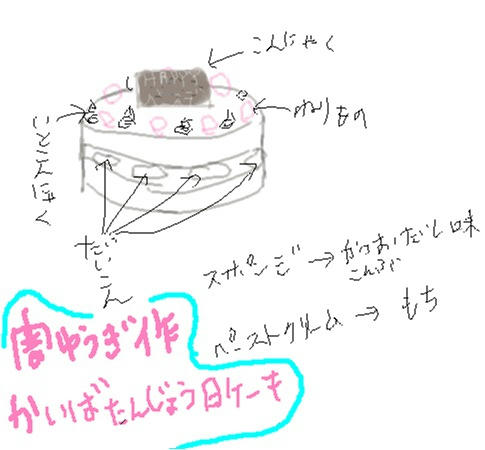 こんにゃく
HAPPY
ねりもの
いとこんにゃく
だいこん
スポンジ → かつおだし味
こんぶ
ペーストクリーム → もち
闇ゆうぎ作
かいばたんじょう日ケーキ